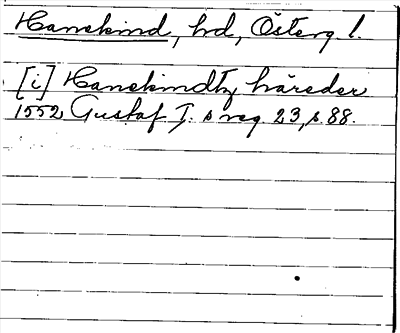 Hanekind, hd, Österg l.
[i] Hanekindtz häreder
1552 Gustaf I:s reg 23, s 88.